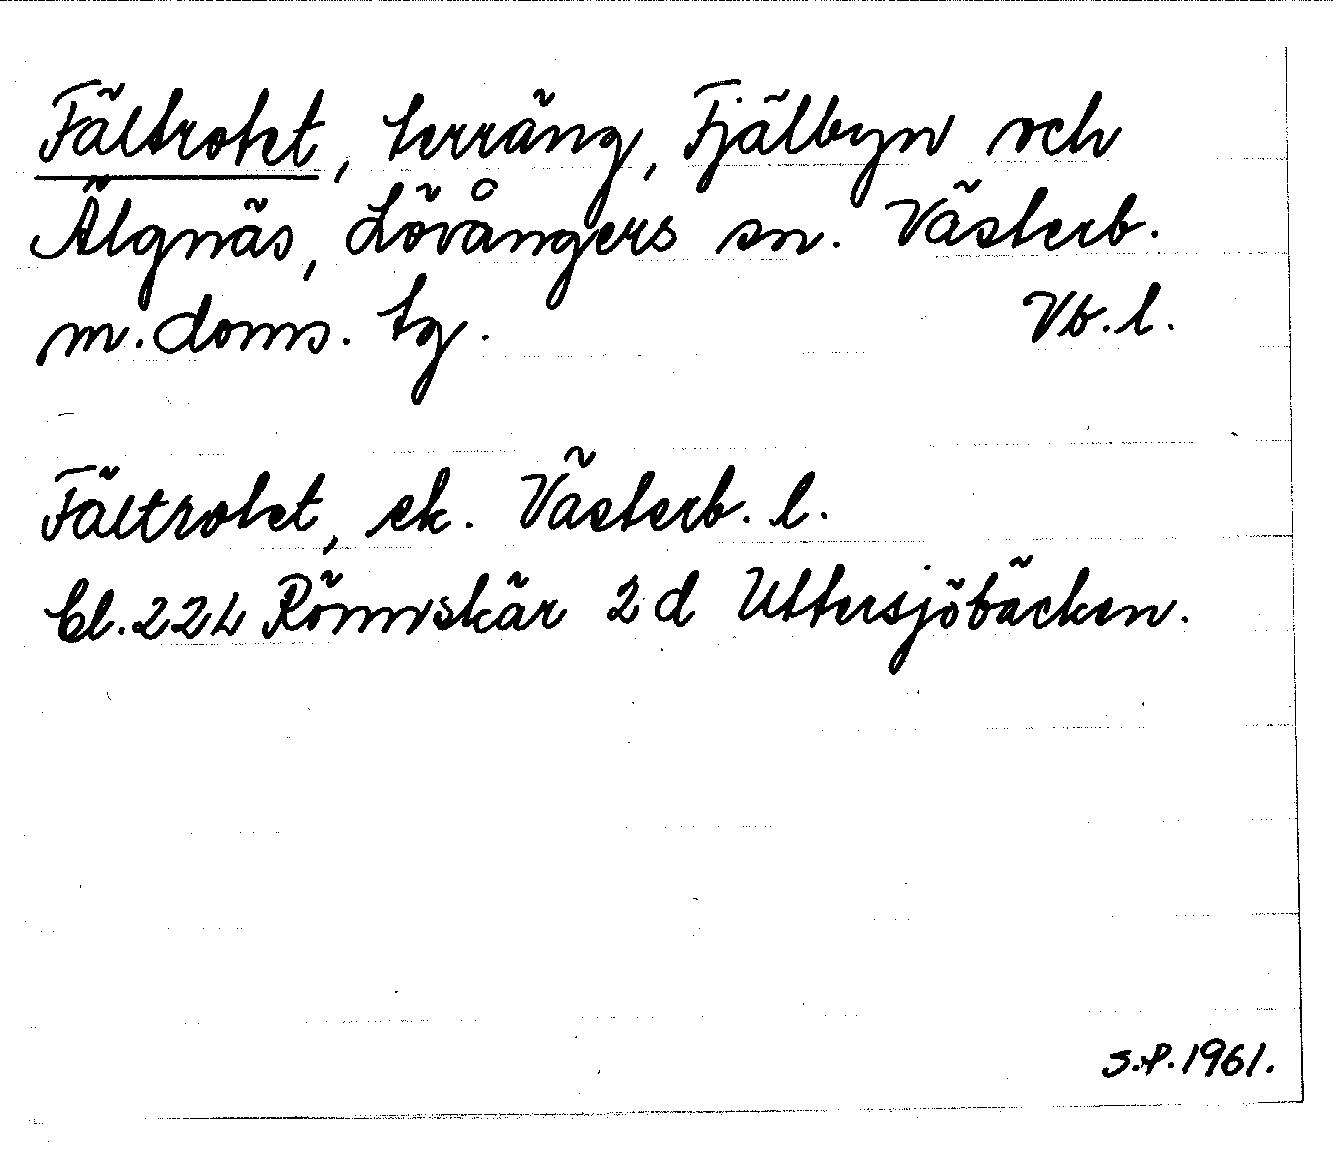 Fältrotet, terräng, Fjälbyn och
Älgnäs, Lövångers sn. Västerb.
m. doms. tg. Vb. l.
Fältrotet, ek. Västerb. l.
bl. 22L Rönnskär 2 d Uttersjöbäcken.
S.P. 1961.